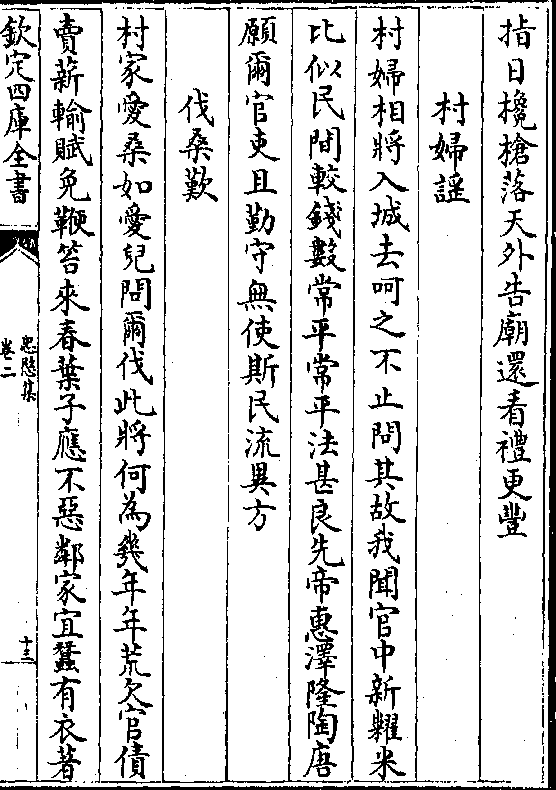 指日欃槍落天外告廟還看禮更豐
村婦謡
村婦相將入城去呵之不止問其故我聞官中新糶米
比似民間較錢數常平常平法甚良先帝惠澤隆陶唐
願爾官吏且勤守無使斯民流異方
伐桑歎
村家愛桑如愛兒問爾伐此將何為幾年年荒欠官債
賣薪輸賦免鞭笞來春葉子應不惡鄰家宜蠶有衣著
欽定四庫全書
忠愍集
卷二
十三